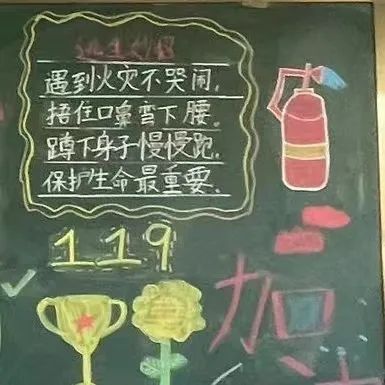 遇到火灾不哭闹。
捂住口鼻弯下腰。
蹲下身子慢慢跑。
保护生命最重要。
119
加